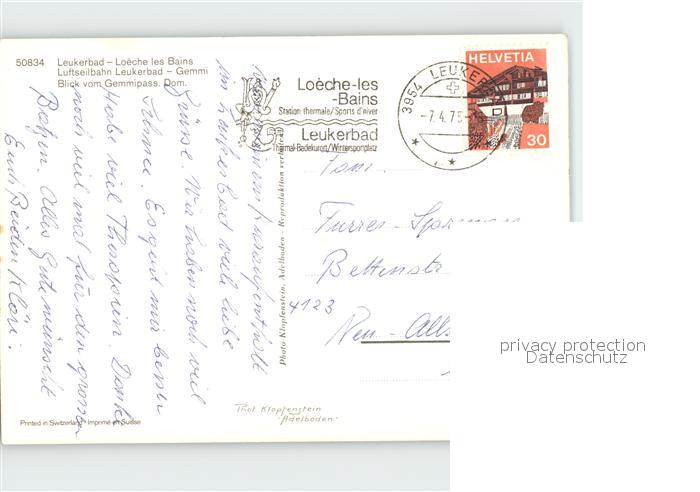 50834 Leukerbad – Loèche les Bains
Luftseilbahn Leukerbad – Gemmi
Blick vom Gemmipass. Dom.
Loèche-les
-Bains
Station thermale/Sports d'hiver
Leukerbad
Thermal-Badekurort/Wintersportplatz
3954 LEUKERBAD
-7.4.75-
HELVETIA
30
viele liebe
Grüsse. Wir haben noch viel
Schnee. Es geht mir besser
Hab viel Danke
noch viel mal für den grossen
Batzen. Alles Gute wünscht
Euch Beiden Klöri
Photo Klopfenstein, Adelboden - Reproduktion verboten
Toni
Furrer-
Bettenstr
4123
Neu-Alls
Phot Klopfenstein
-Adelboden-
Printed in Switzerland - Imprimé en Suisse
privacy protection
Datenschutz